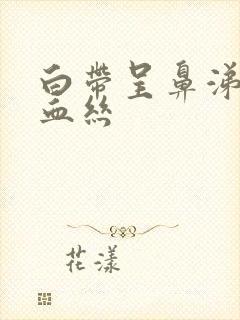 白帶呈鼻涕
血絲
花漾